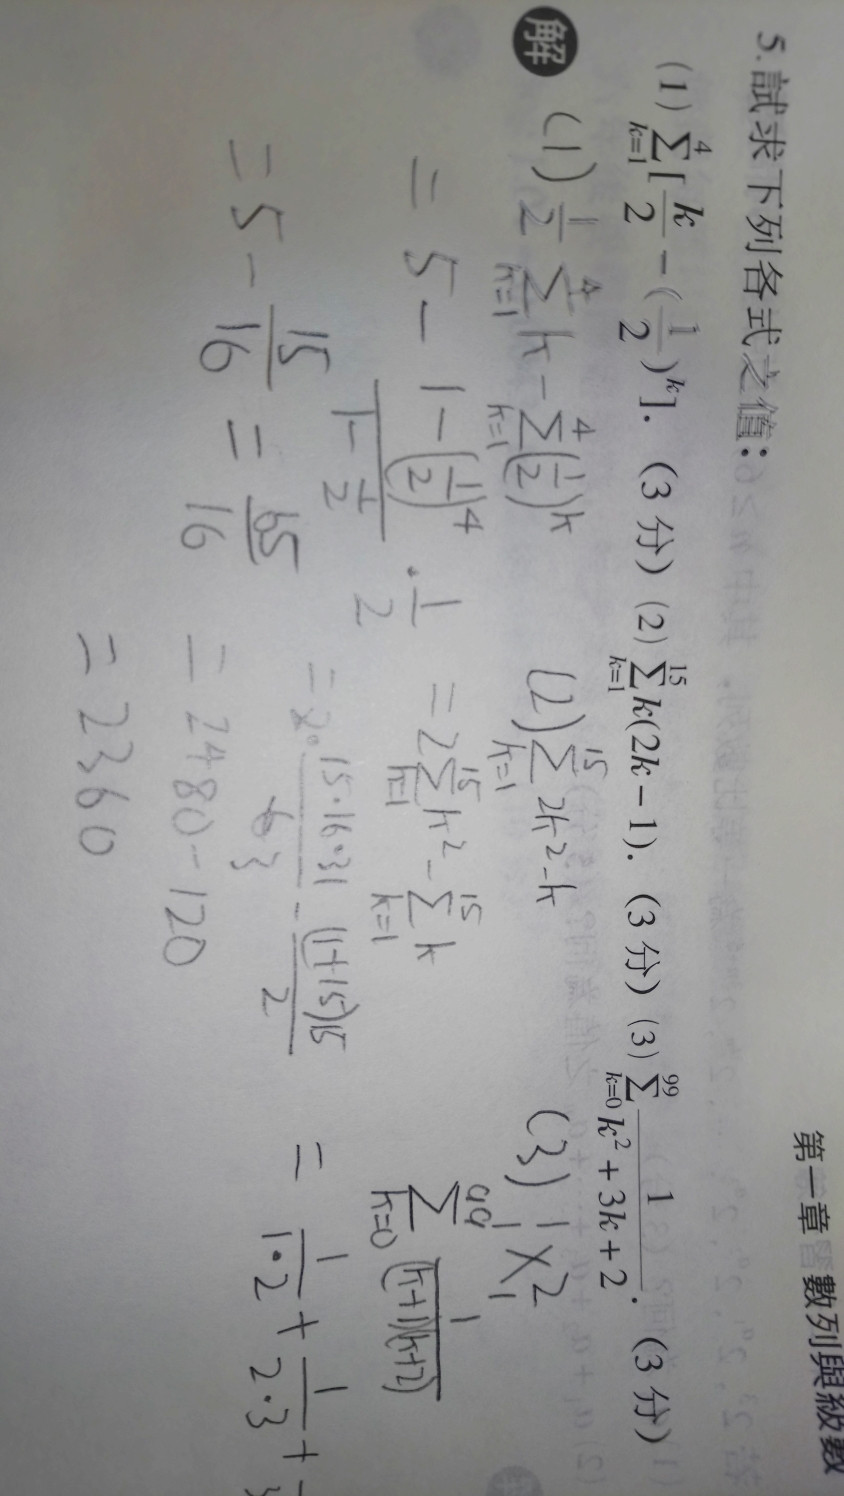 第一章 數列與級數
5. 試求下列各式之值：
(1) \sum_{k=1}^{4} [\frac{k}{2} - (\frac{1}{2})^k]. (3 分) (2) \sum_{k=1}^{15} k(2k-1). (3 分) (3) \sum_{k=0}^{99} \frac{1}{k^2+3k+2}. (3 分)
解
(1) \frac{1}{2} \sum_{k=1}^{4} k - \sum_{k=1}^{4} (\frac{1}{2})^k
= 5 - \frac{1-(\frac{1}{2})^4}{1-\frac{1}{2}} \cdot \frac{1}{2}
= 5 - \frac{15}{16} = \frac{65}{16}
(2) \sum_{k=1}^{15} 2k^2-k
= 2\sum_{k=1}^{15} k^2 - \sum_{k=1}^{15} k
= 2 \cdot \frac{15 \cdot 16 \cdot 31}{6 3} - \frac{(1+15)15}{2}
= 2480 - 120
= 2360
(3) 1 1 × 2 1
\sum_{k=0}^{99} \frac{1}{(k+1)(k+2)}
= \frac{1}{1 \cdot 2} + \frac{1}{2 \cdot 3} +